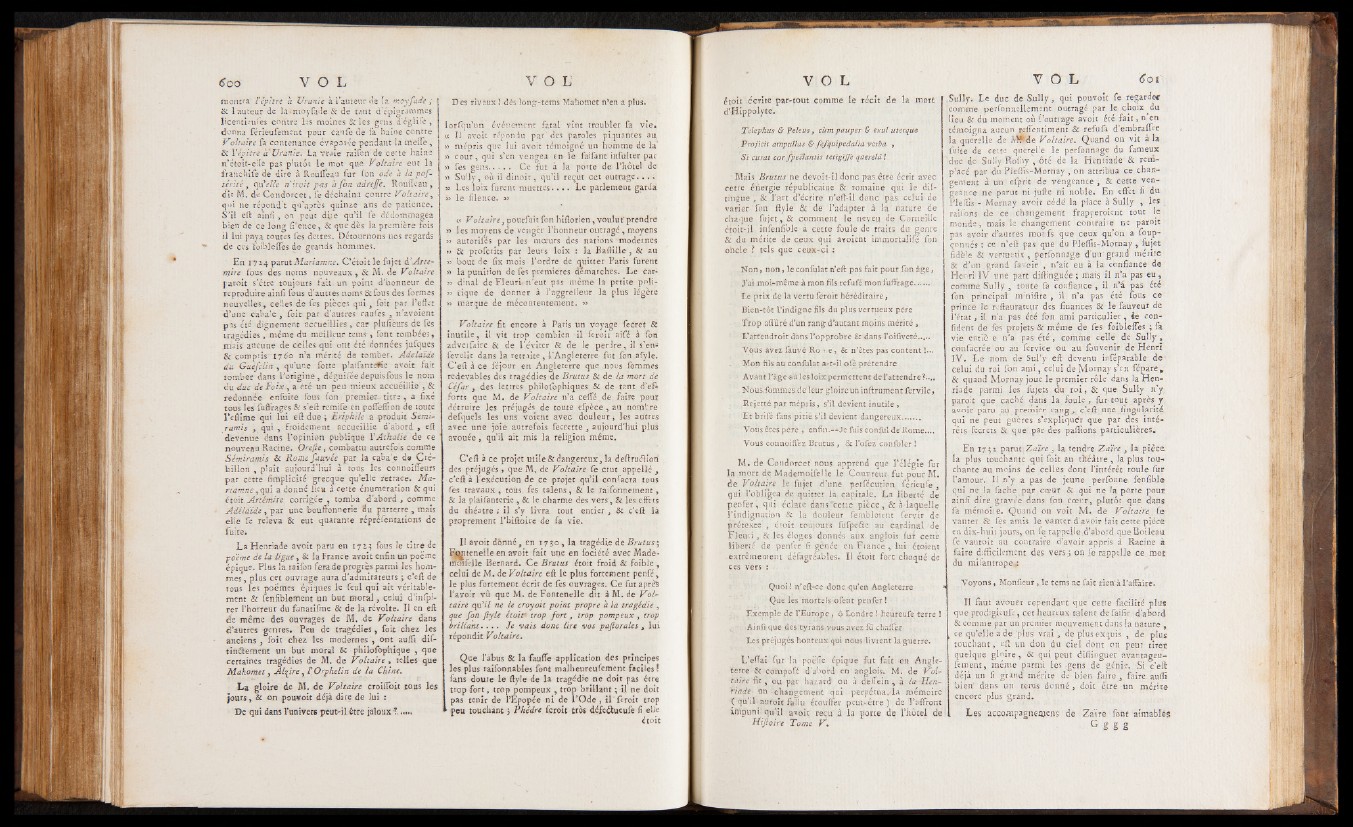 600 VOL
montra l'épître à Uranie à l'auteur de la moysade ;
& l'auteur de la moysade & de tant d'épigrammes
licentieuses contre les moines & les gens d'église,
donna sérieusement pour cause de sa haine contre
Voltaire sa contenance évaporée pendant la messe,
& l'épître à Uranie. La vraie raison de cette haine
n'étoit-elle pas plutôt le mot que Voltaire eut la
franchise de dire à Rousseau sur son ode à la pos-
térité, qu'elle n'iroit pas à son adresse. Rousseau,
dit M. de Condorcet, se déchaina contre Voltaire,
qui ne répondit qu'après quinze ans de patience.
S'il est ainsi, on peut dire qu'il se dédommagea
bien de ce long silence, & que dès la première fois
il lui paya toutes ses dettes. Détournons nos regards
de ces foiblesses de grands hommes.
En 1724 parut Mariamne. C'étoit le sujet d'Arte-
mire sous des noms nouveaux, & M. de Voltaire
paroît s'être toujours fait un point d'honneur de
reproduire ainsi sous d'autres noms & sous des formes
nouvelles, celles de ses pièces qui, soit par l'effet
d'une cabale, soit par d'autres causes, n'avoient
pas été dignement accueillies, car plusieurs de ses
tragédies, même du meilleur tems, sont tombées,
mais aucune de celles qui ont été données jusques
& compris 1760 n'a mérité de tomber. Adelaïde
du Guesclin, qu'une sotte plaisanterie avoit fait
tomber dans l'origine, déguisée depuis sous le nom
du duc de Foix, a été un peu mieux accueillie, &
redonnée ensuite sous son premier titre, a fixé
tous les suffrages & s'est remise en possession de toute
l'estime qui lui est due ; Eriphile a produit Semi-
ramis, qui, froidement accueillie d'abord, est
devenue dans l'opinion publique l'Athalie de ce
nouveau Racine. Oreste, combattu autrefois comme
Sémiramis & Rome sauvée par la cabale de Cré-
billon, plaît aujourd'hui à tous les connoisseurs
par cette simplicité grecque qu'elle retrace. Ma-
riamne, qui a donné lieu à cette énumération & qui
étoit Artémire corrigée, tomba d'abord, comme
Adélaïde, par une bouffonnerie du parterre, mais
elle se releva & eut quarante représentations de
suite.
La Henriade avoit paru en 1723 sous le titre de
poëme de la ligue, & la France avoit enfin un poëme
épique. Plus la raison fera de progrès parmi les hom-
mes, plus cet ouvrage aura d'admirateurs ; c'est de
tous les poëmes épiques le seul qui ait véritable-
ment & sensiblement un but moral, celui d'inspi-
rer l'horreur du fanatisme & de la révolte. Il en est
de même des ouvrages de M. de Voltaire dans
d'autres genres. Peu de tragédies, soit chez les
anciens, soit chez les modernes, ont aussi dis-
tinctement un but moral & philosophique, que
certaines tragédies de M. de Voltaire, telles que
Mahomet, Alzire, l'Orphelin de la Chine.
La gloire de M. de Voltaire croissoit tous les
jours, & on pouvoit déjà dire de lui :
De qui dans l'univers peut-il être jaloux ?.....
VOL
Des rivaux ! dès long-tems Mahomet n'en a plus.
lorsqu'un événement fatal vint troubler sa vie.
« Il avoit répondu par des paroles piquantes au
» mépris que lui avoit témoigné un homme de la
» cour, qui s'en vengea en le faisant insulter par
» ses gens..... Ce fut à la porte de l'hôtel de
» Sully, où il dînoit, qu'il reçut cet outrage....
» Les loix furent muettes.... Le parlement garda
» le silence. »
« Voltaire, poursuit son historien, voulut prendre
» les moyens de venger l'honneur outragé, moyens
» autorisés par les mœurs des nations modernes
» & proscrits par leurs loix : la Bastille, & au
» bout de six mois l'ordre de quitter Paris furent
» la punition de ses premieres démarches. Le car-
» dinal de Fleuri n'eut pas même la petite poli-
» tique de donner à l'aggresseur la plus légère
» marque de mécontentement. »
Voltaire fit encore à Paris un voyage secret &
inutile, il vit trop combien il seroit aisé à son
adversaire & de l'éviter & de le perdre, il s'en-
sevelit dans la retraite, l'Angleterre fut son asyle.
C'est à ce séjour en Angleterre que nous sommes
redevables des tragédies de Brutus & de la mort de
César, des lettres philosophiques & de tant d'ef-
forts que M. de Voltaire n'a cessé de faire pour
détruire les préjugés de toute espèce, au nombre
desquels les uns voient avec douleur, les autres
avec une joie autrefois secrette, aujourd'hui plus
avouée, qu'il ait mis la religion même.
C'est à ce projet utile & dangereux, la destruction
des préjugés, que M. de Voltaire se crut appellé,
c'est à l'exécution de ce projet qu'il consacra tous
ses travaux, tous ses talens, & le raisonnement,
& la plaisanterie, & le charme des vers, & les effets
du théatre ; il s'y livra tout entier, & c'est là
proprement l'histoire de sa vie.
Il avoit donné, en 1730, la tragédie de Brutus ;
Fontenelle en avoit fait une en société avec Made-
moiselle Bernard. Ce Brutus étoit froid & foible,
celui de M. de Voltaire est le plus fortement pensé,
le plus fortement écrit de ses ouvrages. Ce fut après
l'avoir vû que M. de Fontenelle dit à M. de Vol-
taire qu'il ne le croyoit point propre à la tragédie,
que son style étoit trop fort, trop pompeux, trop
brillant.... Je vais donc lire vos pastorales, lui
répondit Voltaire.
Que l'abus & la fausse application des principes
les plus raisonnables sont malheureusement faciles !
sans doute le style de la tragédie ne doit pas être
trop fort, trop pompeux, trop brillant ; il ne doit
pas tenir de l'Epopée ni de l'Ode, il seroit trop
peu touchant ; Phédre seroit très défectueuse si elle
étoit
VOL
étoit écrite par-tout comme le récit de la mort
d'Hippolyte.
Telephus & Peleus, cùm pauper & exul uterque
Projicit ampullas & sesquipedalia verba,
Si curat cor spectantis tetigisse querelâ !
Mais Brutus ne devoit-il donc pas être écrit avec
cette énergie républicaine & romaine qui le dis-
tingue, & l'art d'écrire n'est-il donc pas celui de
varier son style & de l'adapter à la nature de
chaque sujet, & comment le neveu de Corneille
étoit-il insensible à cette foule de traits du genre
& du mérite de ceux qui avoient immortalisé son
oncle ? tels que ceux-ci :
Non, non, le consulat n'est pas fait pour son âge,
J'ai moi-même à mon fils refusé mon suffrage.....
Le prix de la vertu seroit héréditaire,
Bien-tôt l'indigne fils du plus vertueux père
Trop assûré d'un rang d'autant moins mérité,
L'attendroit dans l'opprobre & dans l'oisiveté.....
Vous avez sauvé Rome, & n'êtes pas content !...
Mon fils au consulat a-t-il osé prétendre
Avant l'âge où les loix permettent de l'attendre ?...
Nous sommes de leur gloire un instrument servile,
Rejetté par mépris, s'il devient inutile,
Et brisé sans pitié s'il devient dangereux.....
Vous êtes père, enfin.—Je suis consul de Rome....
Vous connoissez Brutus, & l'osez consoler !
M. de Condorcet nous apprend que l'élégie sur
la mort de Mademoiselle le Couvreur fut pour M.
de Voltaire le sujet d'une persécution sérieuse,
qui l'obligea de quitter la capitale. La liberté de
penser, qui éclate dans cette pièce, & à laquelle
l'indignation & la douleur sembloient servir de
prétexte, étoit toujours suspecte au cardinal de
Fleuri, & les éloges donnés aux anglois sur cette
liberté de penser si gênée en France, lui étoient
extrêmement désagréables. Il étoit fort choqué de
ces vers :
Quoi ! n'est-ce donc qu'en Angleterre
Que les mortels osent penser !
Exemple de l'Europe, ô Londre ! heureuse terre !
Ainsi que des tyrans vous avez sû chasser
Les préjugés honteux qui nous livrent la guerre.
L'essai sur la poësie épique fut fait en Angle-
terre & composé d'abord en anglois. M. de Vol-
taire fit, ou par hazard ou à dessein, à la Hen-
riade un changement qui perpétua la mémoire
( qu'il auroit fallu étouffer peut-être ) de l'affront
impuni qu'il avoit reçu à la porte de l'hôtel de
Histoire Tome V.
VOL 601
Sully. Le duc de Sully, qui pouvoit se regarder
comme personnellement outragé par le choix du
lieu & du moment où l'outrage avoit été fait, n'en
témoigna aucun ressentiment & refusa d'embrasser
la querelle de M. de Voltaire. Quand on vit à la
suite de cette querelle le personnage du fameux
duc de Sully Rosny, ôté de la Henriade & rem-
placé par du Plessis-Mornay, on attribua ce chan-
gement à un esprit de vengeance, & cette ven-
geance ne parut ni juste ni noble. En effet si du
Plessis-Mornay avoit cédé la place à Sully, les
raisons de ce changement frapperoient tout le
monde, mais le changement contraire ne paroît
pas avoir d'autres motifs que ceux qu'on a soup-
çonnés : ce n'est pas que du Plessis-Mornay, sujet
fidèle & vertueux, personnage d'un grand mérite
& d'un grand savoir, n'ait eu à la confiance de
Henri IV une part distinguée ; mais il n'a pas eu,
comme Sully, toute sa confiance, il n'a pas été
son principal ministre, il n'a pas été sous ce
prince le restaurateur des finances & le sauveur de
l'état, il n'a pas été son ami particulier, le con-
fident de ses projets & même de ses foiblesses ; sa
vie entière n'a pas été, comme celle de Sully,
consacrée ou au service ou au souvenir de Henri
IV. Le nom de Sully est devenu inséparable de
celui du roi son ami, celui de Mornay s'en sépare,
& quand Mornay joue le premier rôle dans la Hen-
riade parmi les sujets du roi, & que Sully n'y
paroît que caché dans la foule, sur-tout après y
avoir paru au premier rang, c'est une singularité
qui ne peut guères s'expliquer que par des inté-
rêts secrets & que par des passions particulières.
En 1732 parut Zaïre, la tendre Zaïre, la pièce
la plus touchante qui soit au théâtre, la plus tou-
chante au moins de celles dont l'intérêt roule sur
l'amour. Il n'y a pas de jeune personne sensible
qui ne la sache par cœur & qui ne la porte pour
ainsi dire gravée dans son cœur, plutôt que dans
sa mémoire. Quand on voit M. de Voltaire se
vanter & ses amis le vanter d'avoir fait cette pièce
en dix-huit jours, on se rappelle d'abord que Boileau
se vantoit au contraire d'avoir appris à Racine à
faire difficilement des vers ; on se rappelle ce mot
du misantrope :
Voyons, Monsieur, le tems ne fait rien à l'affaire.
Il faut avouer cependant que cette facilité plus
que prodigieuse, cet heureux talent de saisir d'abord
& comme par un premier mouvement dans la nature,
ce qu'elle a de plus vrai, de plus exquis, de plus
touchant, est un don du ciel dont on peut tirer
quelque gloire, & qui peut distinguer avantageu-
sement, même parmi les gens de génie. Si c'est
déjà un si grand mérite de bien faire, faire aussi
bien dans un tems donné, doit être un mérite
encore plus grand.
Les accompagnemens de Zaïre sont aimables
G g g g